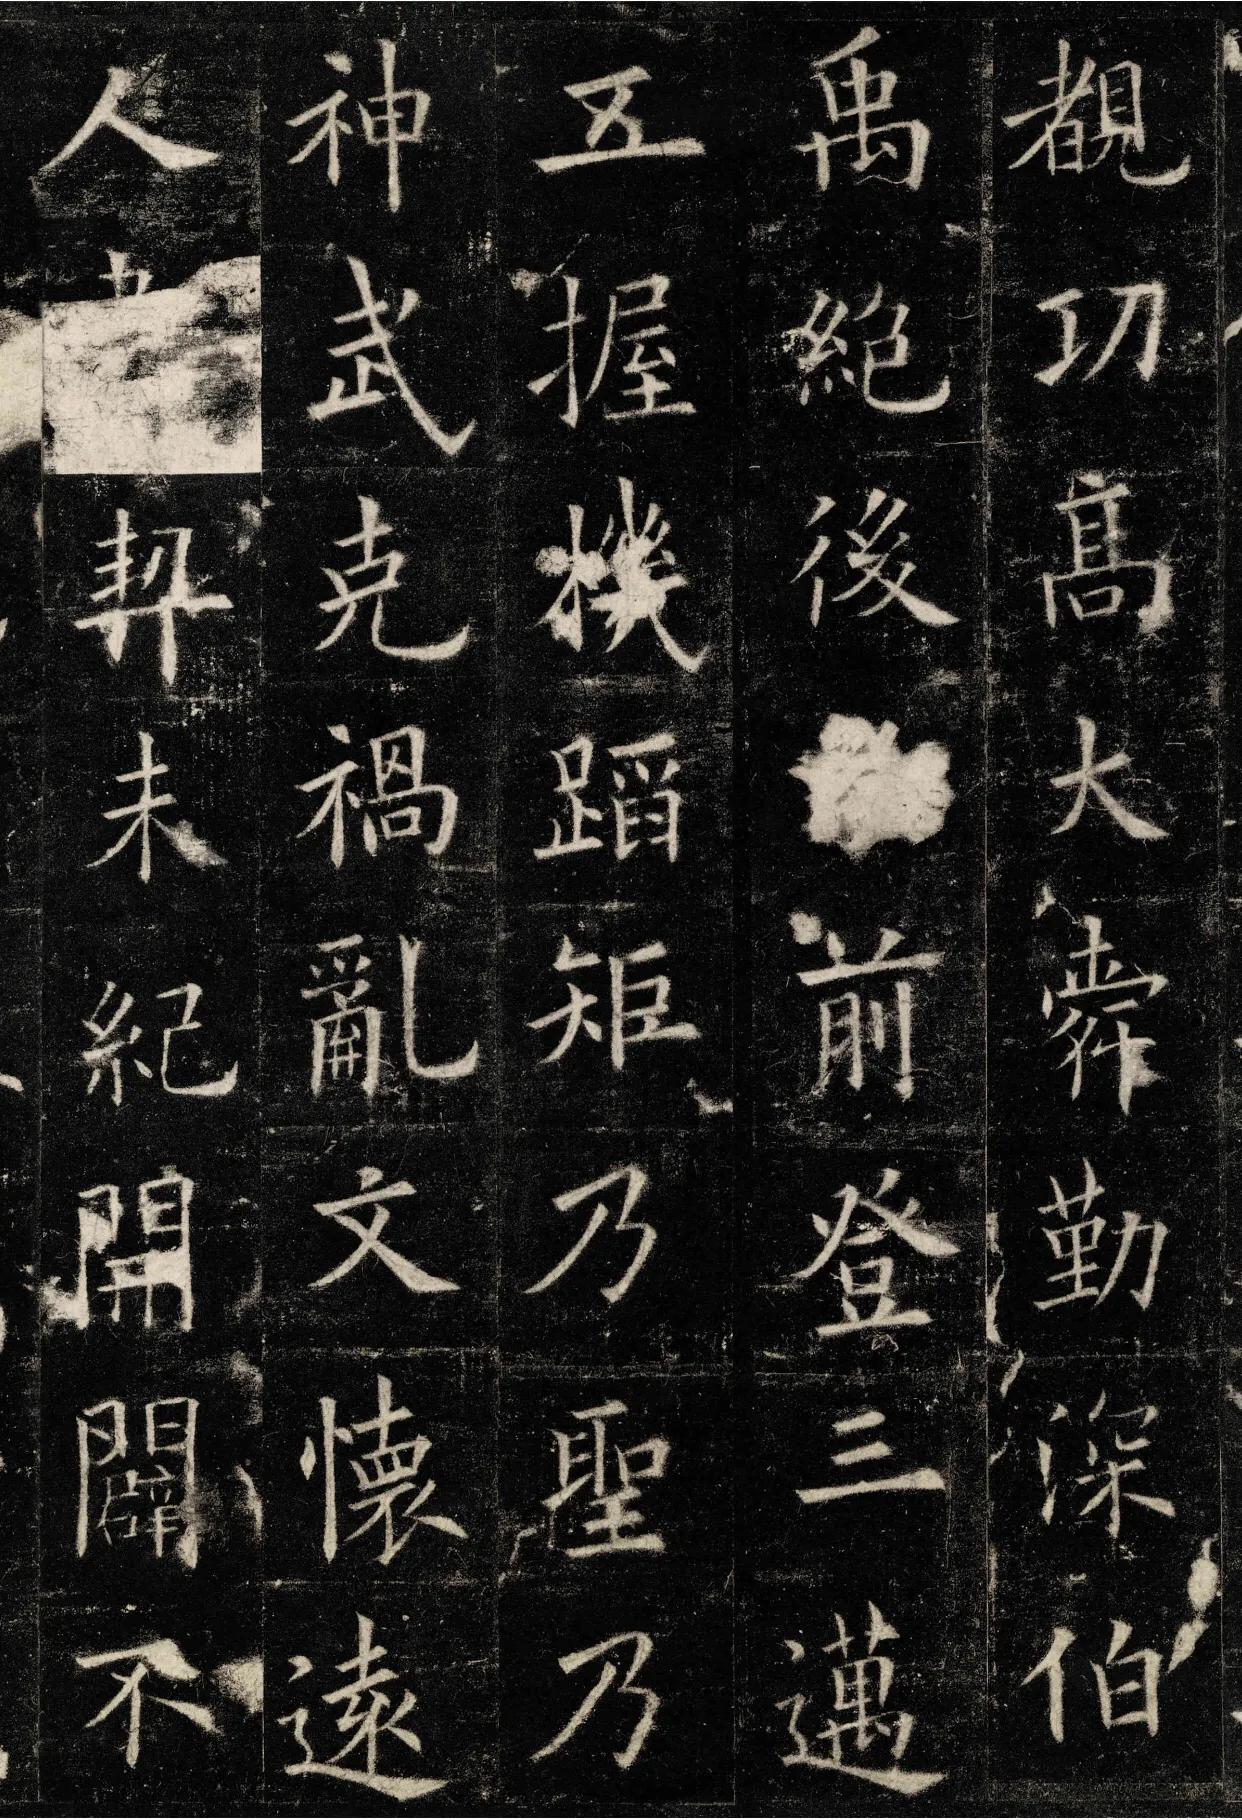 覩功高大舜勤深伯
禹絶後前登三邁
五握機蹈矩乃聖乃
神武克禍亂文懷遠
人契未紀開闢不